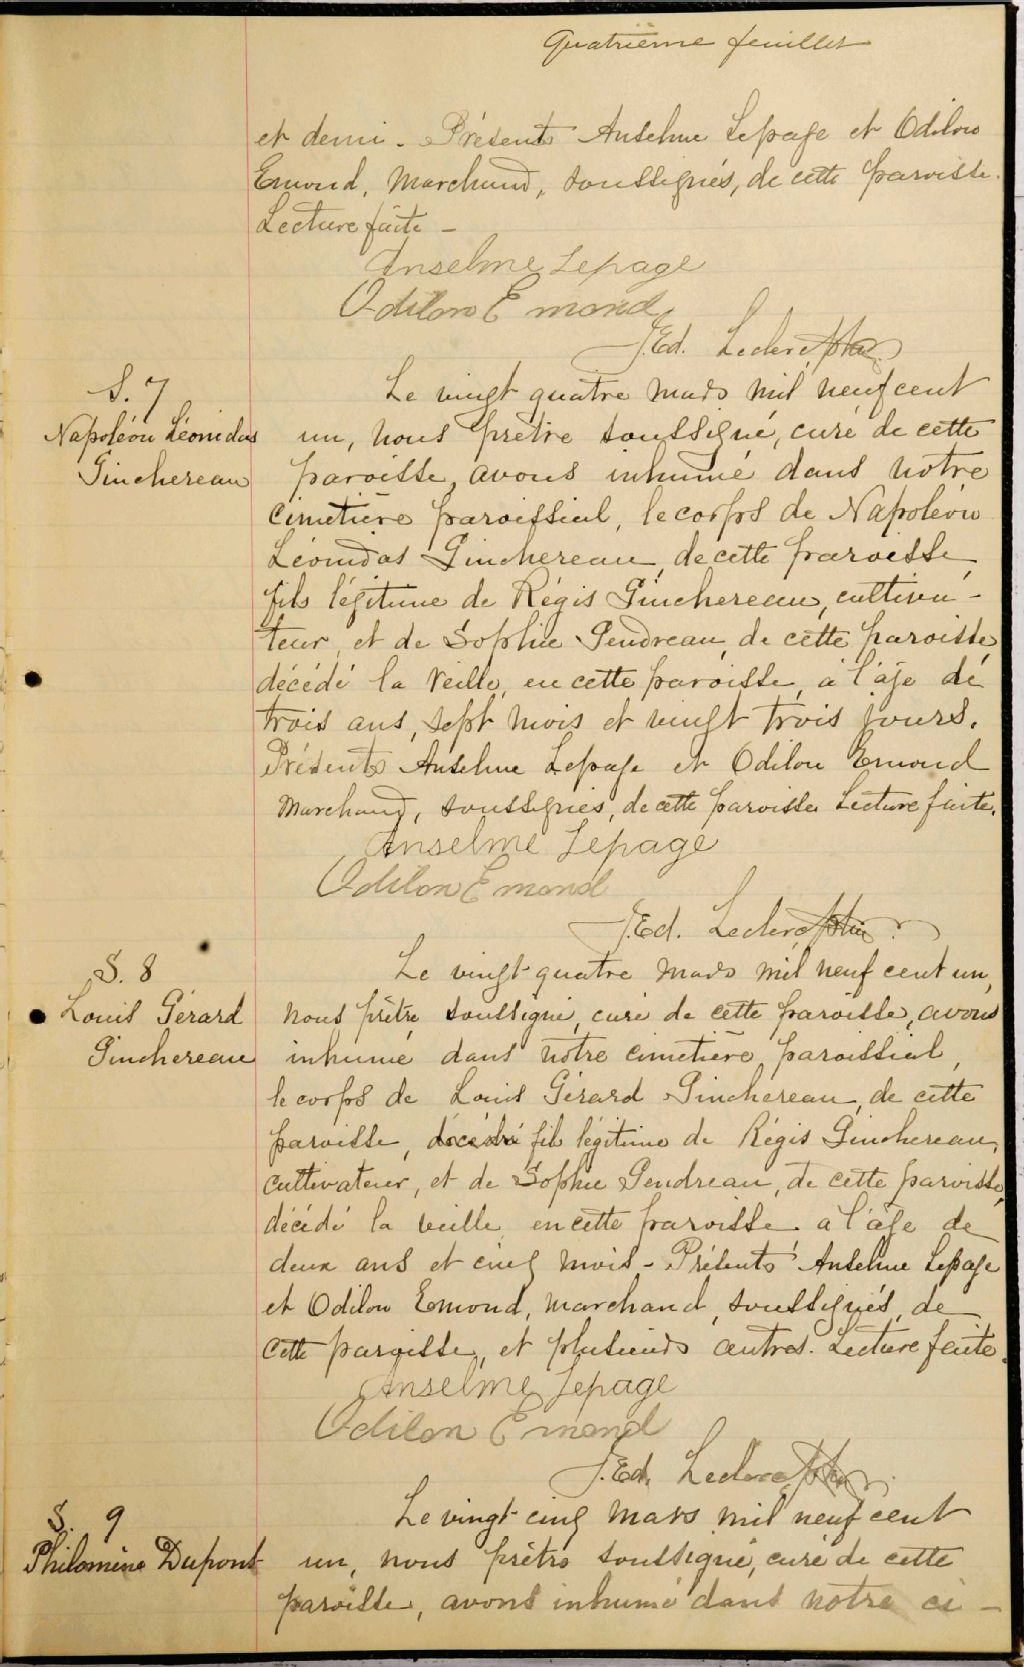 Quatrième feuillet
et demi. Présents Anselme Lepage et Odilon
Emond, Marchand, soussignés, de cette paroisse.
Lecture faite -
Anselme Lepage
Odilon Emond
J.Ed. Leclerc Ptre
S. 7
Napoléon Léonidas
Ginchereau
Le vingt quatre mars mil neuf cent
un, nous prêtre soussigné, curé de cette
paroisse, avons inhumé dans notre
cimetière paroissial, le corps de Napoléon
Léonidas Ginchereau, de cette paroisse,
fils légitime de Régis Ginchereau, cultiva-
teur, et de Sophie Gendreau, de cette paroisse,
décédé la veille, en cette paroisse, à l'âge de
trois ans, sept mois et vingt trois jours.
Présents Anselme Lepage et Odilon Emond
Marchand, soussignés, de cette paroisse Lecture faite.
Anselme Lepage
Odilon Emond
J.Ed. Leclerc Ptre
S. 8
Louis Gérard
Ginchereau
Le vingt quatre mars mil neuf cent un,
nous prêtre soussigné, curé de cette paroisse, avons
inhumé dans notre cimetière paroissial,
le corps de Louis Gérard Ginchereau, de cette
paroisse, décédé fils légitime de Régis Ginchereau,
cultivateur, et de Sophie Gendreau, de cette paroisse,
décédé la veille en cette paroisse à l'âge de
deux ans et cinq mois - Présents Anselme Lepage
et Odilon Emond, marchand, soussignés, de
cette paroisse, et plusieurs autres. Lecture faite.
Anselme Lepage
Odilon Emond
J.Ed. Leclerc Ptre
S. 9
Philomène Dupont
Le vingt-cinq mars mil neuf cent
un, nous prêtre soussigné, curé de cette
paroisse, avons inhumé dans notre ci-